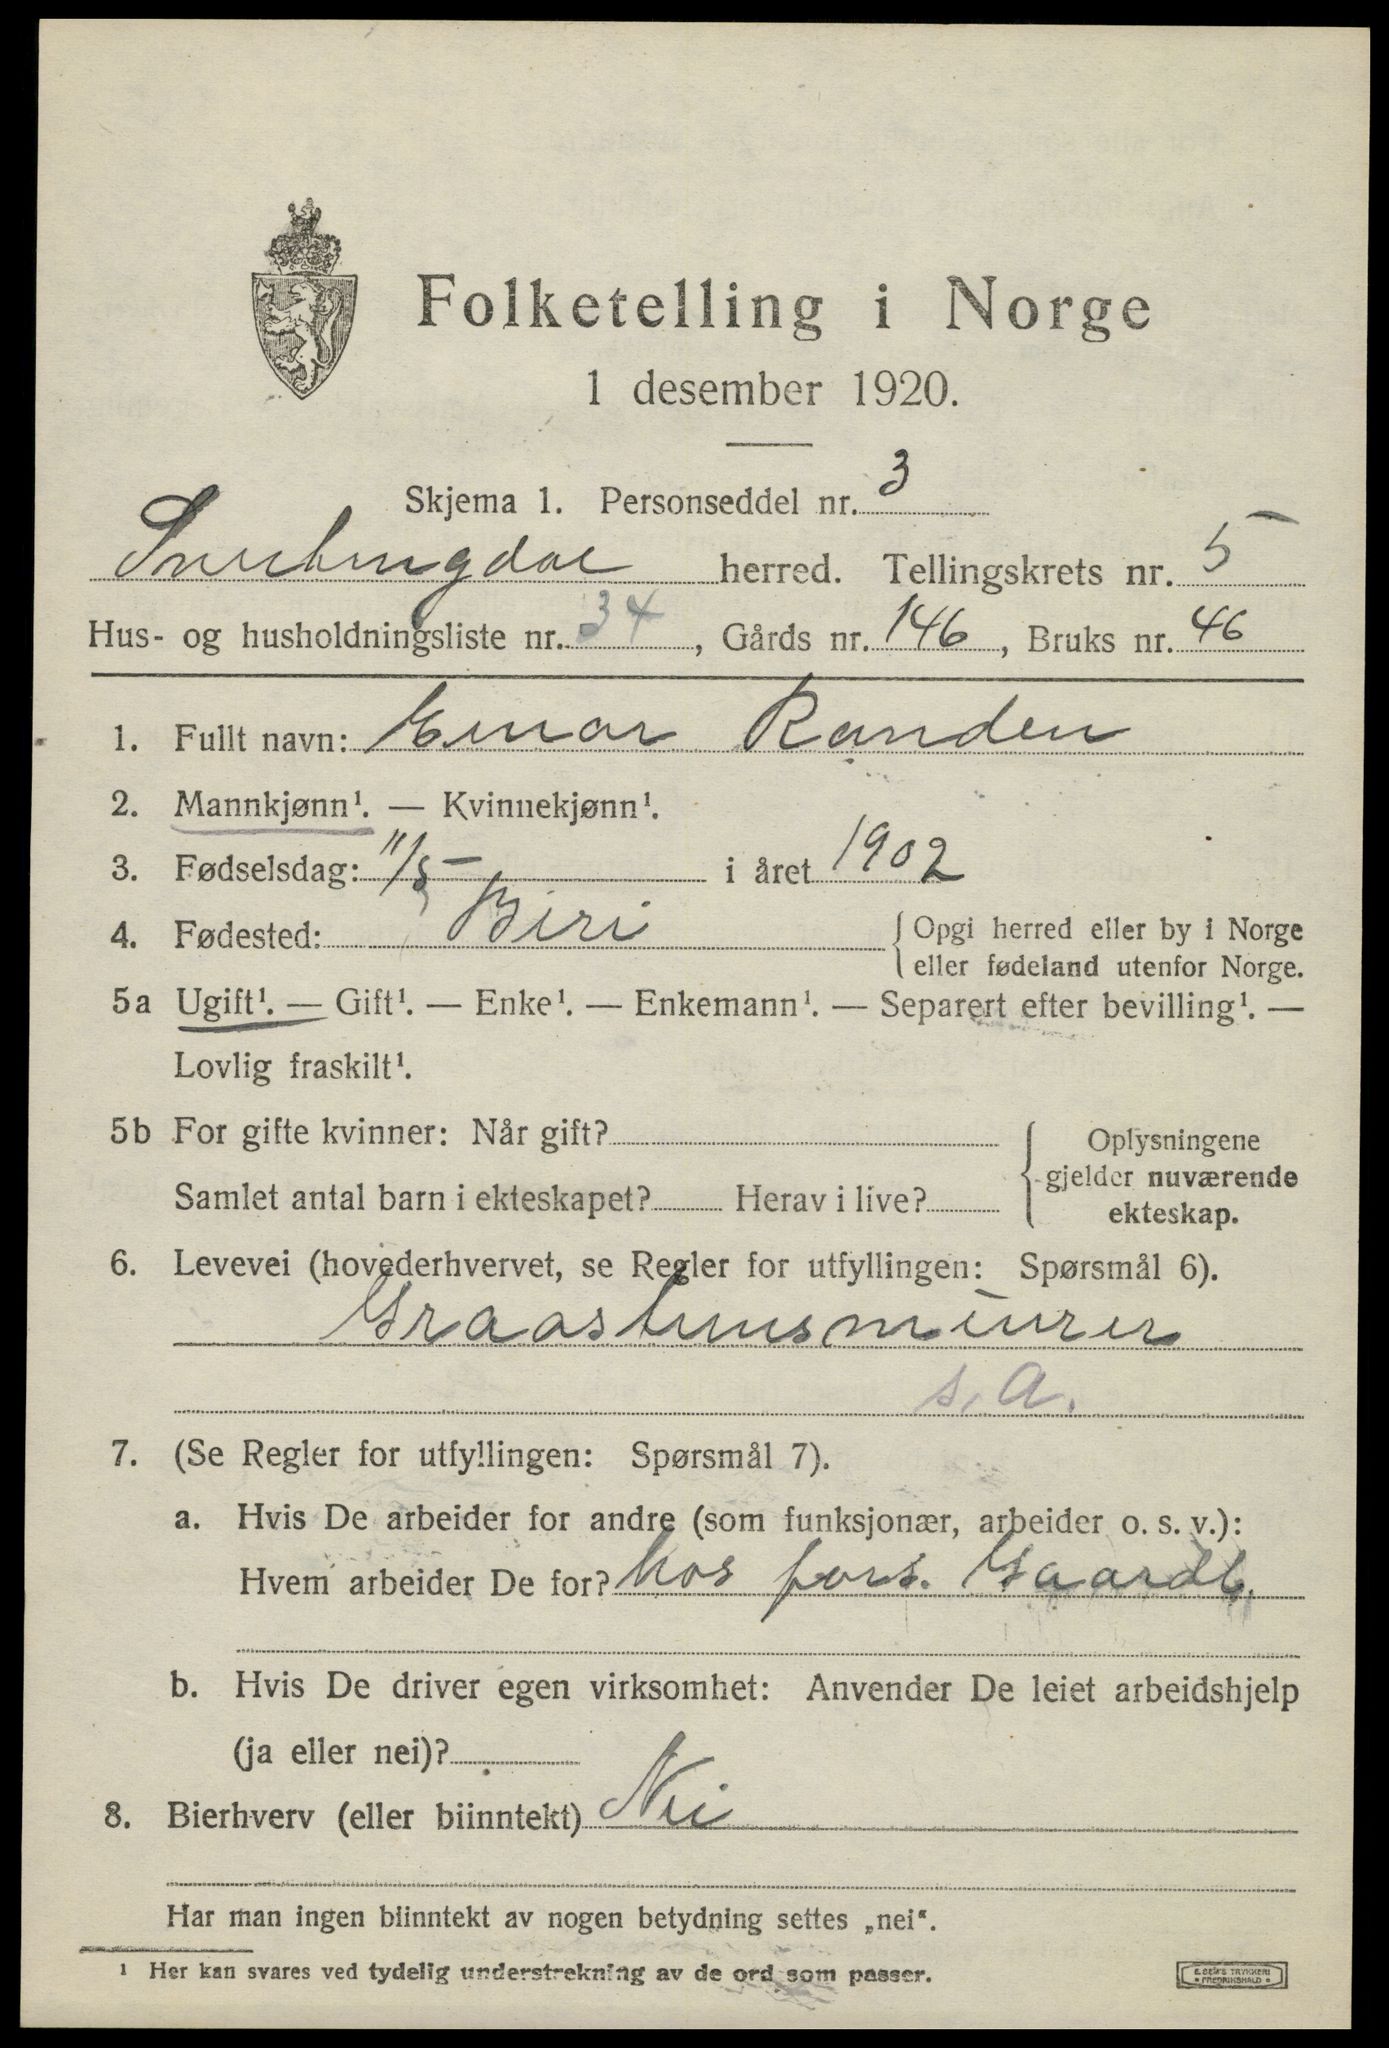 Folketelling i Norge
1 desember 1920.
Skjema 1. Personseddel nr. 3
Snertingdal herred. Tellingskrets nr. 5
Hus- og husholdningsliste nr. 34, Gårds nr. 146, Bruks nr. 46
1. Fullt navn: Einar Randen
2. Mannkjønn¹. — Kvinnekjønn¹.
3. Fødselsdag: 11/5 i året 1902
4. Fødested: Biri {Opgi herred eller by i Norge
eller fødeland utenfor Norge.
5a Ugift¹. — Gift¹. — Enke¹. — Enkemann¹. — Separert efter bevilling¹. —
Lovlig fraskilt¹.
5b For gifte kvinner: Når gift?
Samlet antal barn i ekteskapet? Herav i live?
Oplysningene
gjelder nuværende
ekteskap.
6. Levevei (hovederhvervet, se Regler for utfyllingen: Spørsmål 6).
Graastensmurer
s. a.
7. (Se Regler for utfyllingen: Spørsmål 7).
a. Hvis De arbeider for andre (som funksjonær, arbeider o. s. v.):
Hvem arbeider De for? hos fors. Gaardb.
b. Hvis De driver egen virksomhet: Anvender De leiet arbeidshjelp
(ja eller nei)?
8. Bierhverv (eller biinntekt) Nei
Har man ingen biinntekt av nogen betydning settes „nei“.
¹ Her kan svares ved tydelig understrekning av de ord som passer.
E. SEM'S TRYKKERI
• FREDRIKSHALD •